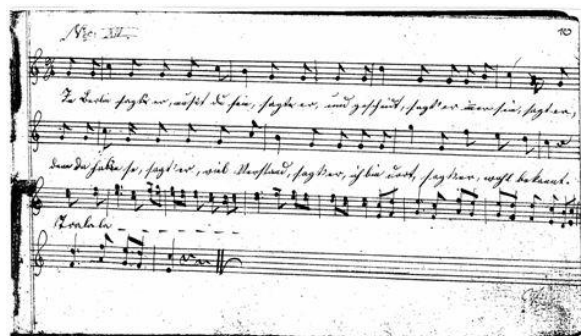 Nro. XII.
10
In Berlin sagt er, mußt du sein, sagt er, und gescheut, sagt er immer sein, sagt er,
denn da habe se, sagt er, viel Verstand, sagt er, ich bin dort, sagt er, wohl bekannt.
Tralala